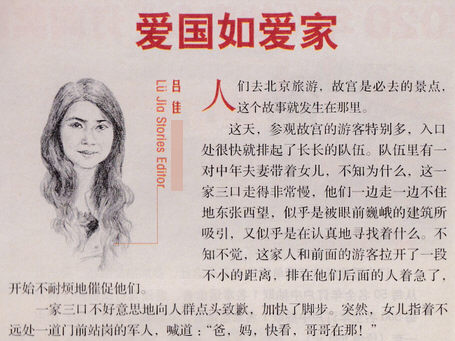 爱国如爱家
吕佳
Lü Jia Stories Editor
人们去北京旅游，故宫是必去的景点，
这个故事就发生在那里。
这天，参观故宫的游客特别多，入口
处很快就排起了长长的队伍。队伍里有一
对中年夫妻带着女儿，不知为什么，这一
家三口走得非常慢，他们一边走一边不住
地东张西望，似乎是被眼前巍峨的建筑所
吸引，又似乎是在认真地寻找着什么。不
知不觉，这家人和前面的游客拉开了一段
不小的距离，排在他们后面的人着急了，
开始不耐烦地催促他们。
一家三口不好意思地向人群点头致歉，加快了脚步。突然，女儿指着不
远处一道门前站岗的军人，喊道：“爸，妈，快看，哥哥在那！”